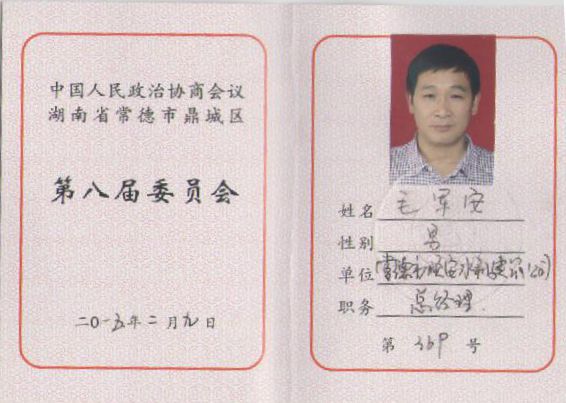 中国人民政治协商会议
湖南省常德市鼎城区
第八届委员会
二〇一五年二月九日
姓名 毛军安
性别 男
单位 常德市顺安水利建筑公司
职务 总经理
第 369 号